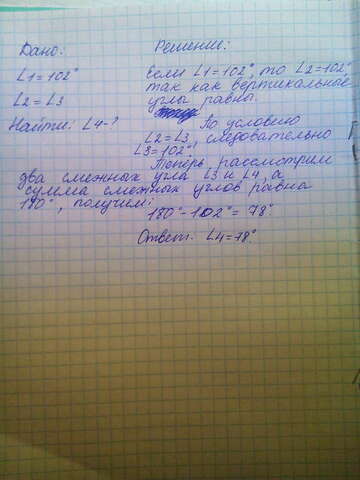 Дано:
Решение:
∠1=102°
Если ∠1=102°, то ∠2=102°,
так как вертикальные
∠2=∠3
углы равны.
Найти: ∠4-?
По условию
∠2=∠3, следовательно
∠3=102°.
Теперь рассмотрим
два смежных угла ∠3 и ∠4, а
сумма смежных углов равна
180°, получим:
180°-102°=78°.
Ответ: ∠4=78°.